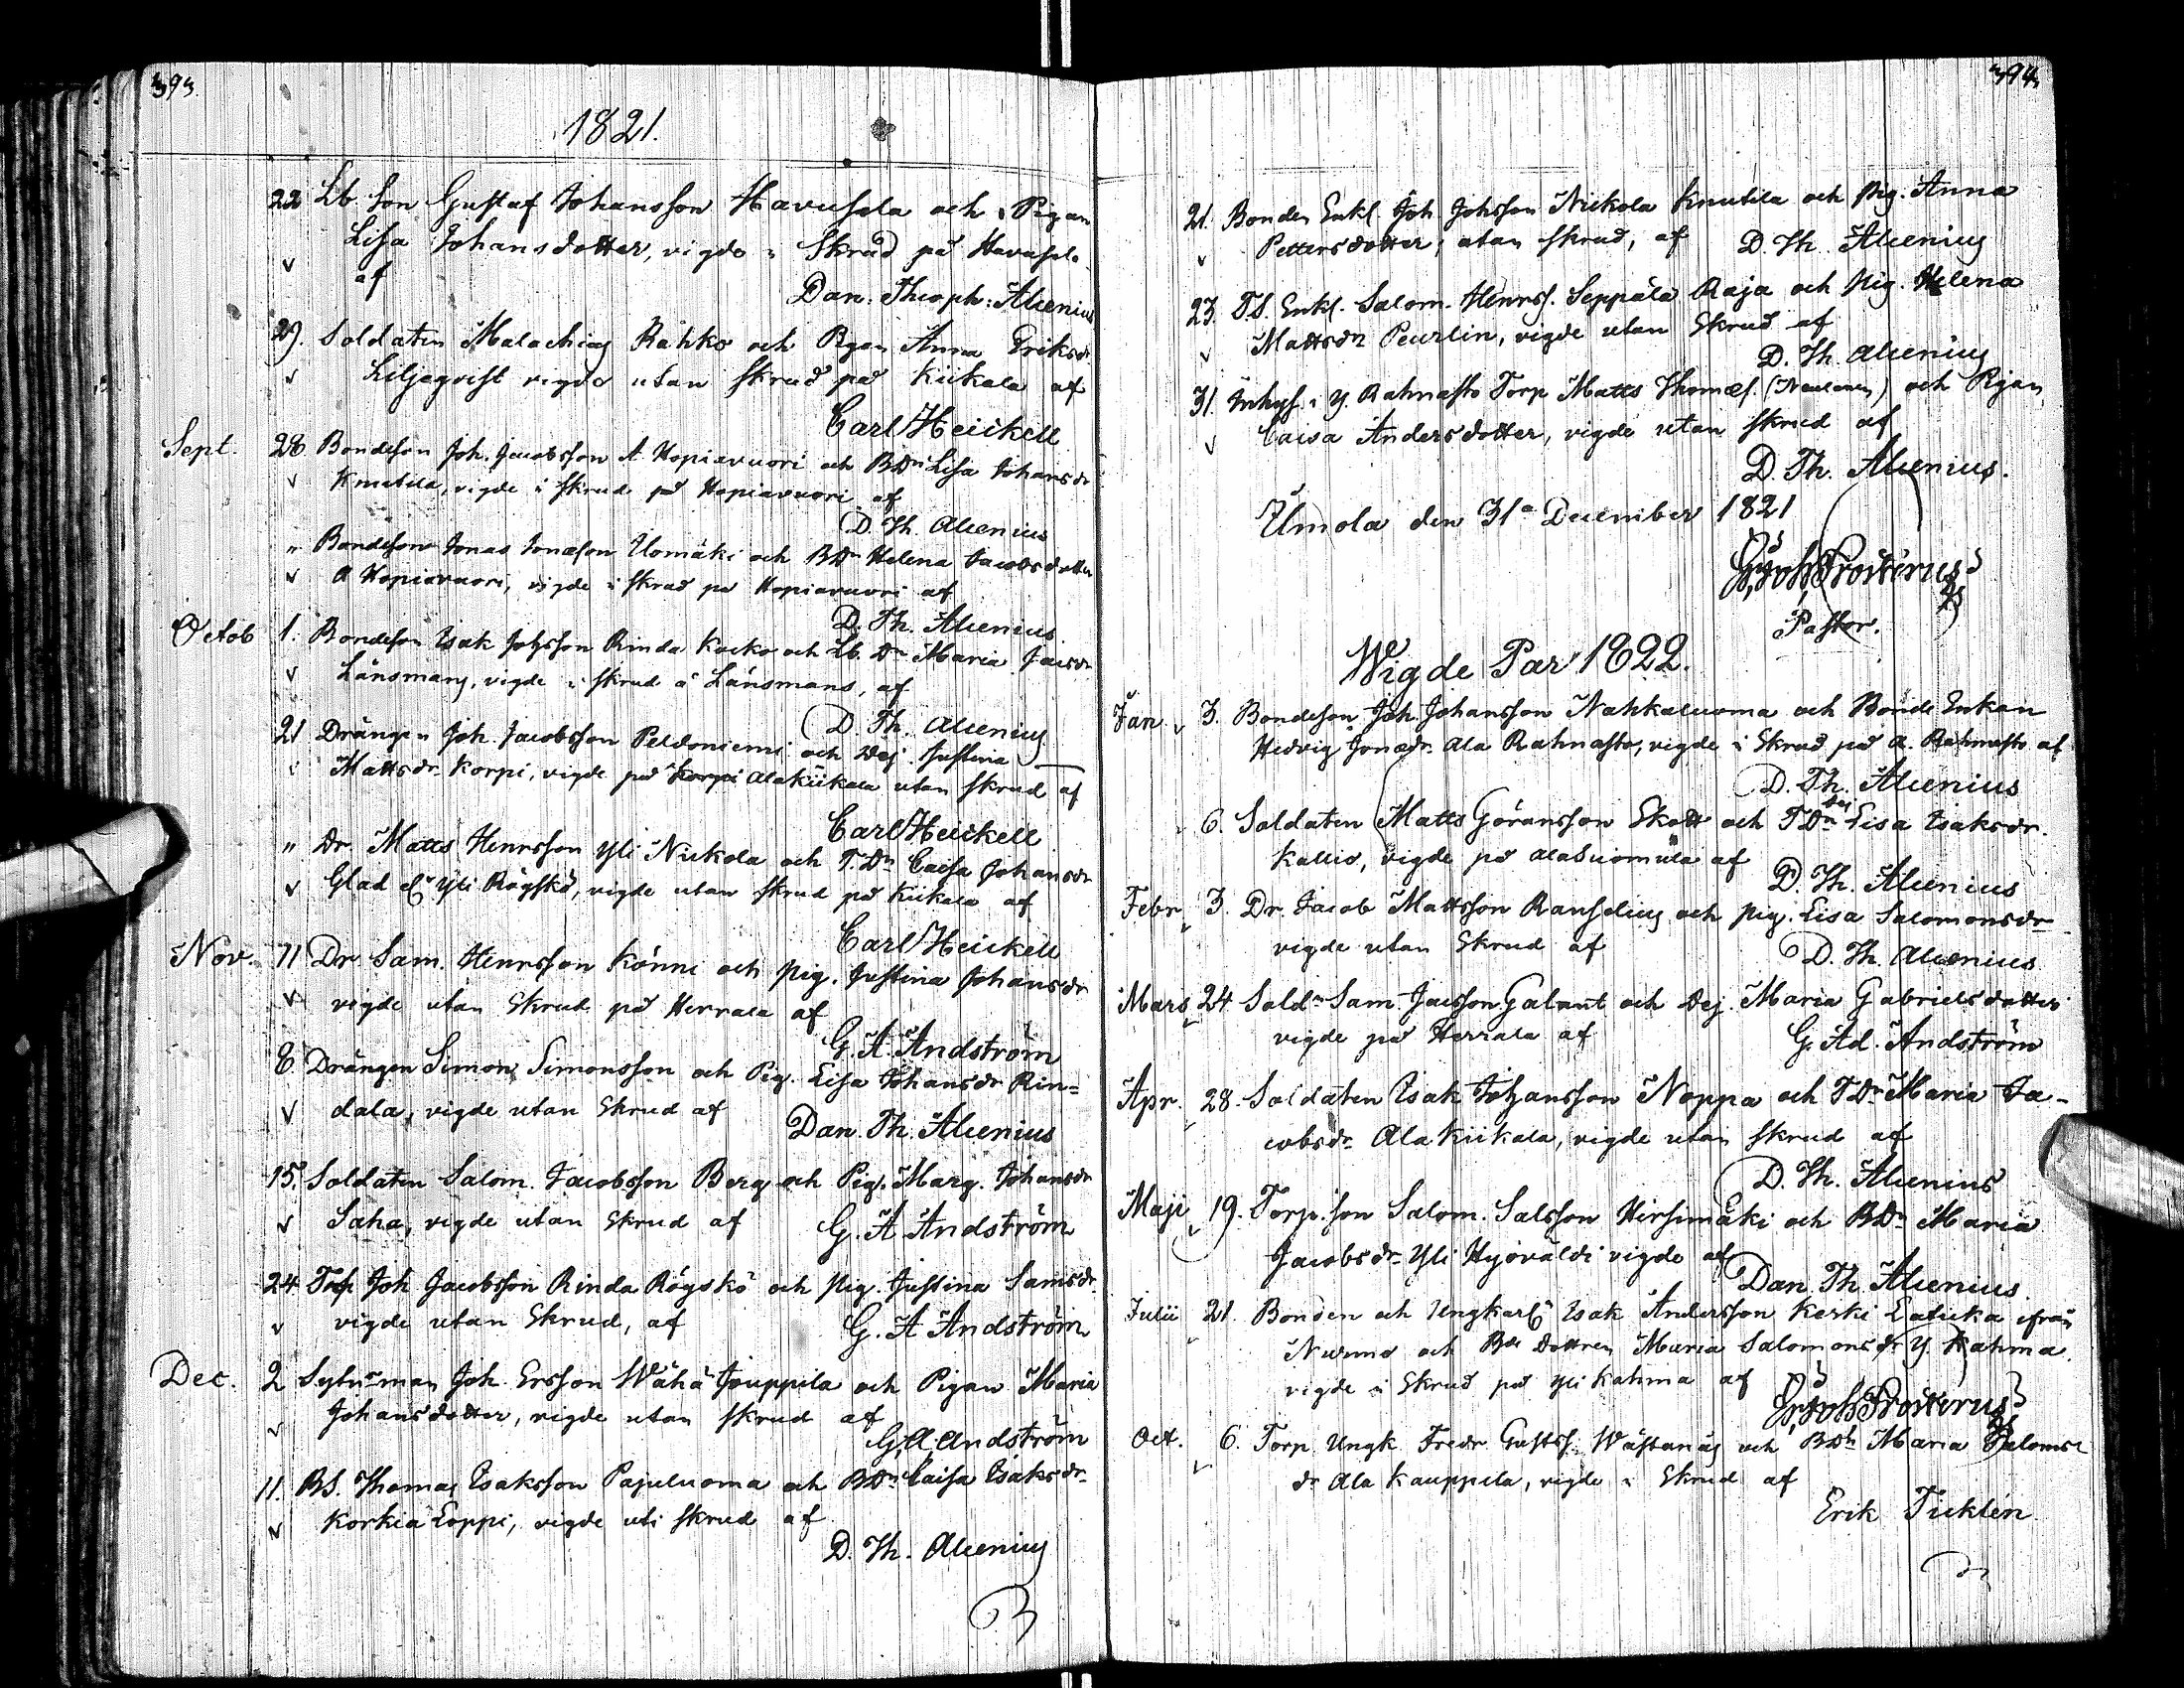 393.
1821.
22 Lb. Son Gustaf Johansson Havusela och Pigan
Lisa Johansdotter, vigde i Skrud på Havusela
af
Dan. Theoph: Alcenius
29. Soldaten Malachias Rähko och Pigan Anna Eriksdr
Liljeqvist vigde utan skrud på Kiikala af
Carl Heickell
Sept. 28 Bondeson Joh. Jacobsson A Hopiavuori och BDr Lisa Johansdr
Knutila, vigde i skrud på Hopiavuori af
D. Th. Alcenius
" Bondeson Jonas Jonasson Ilomäki och BDr Helena Jacobsdotter
A Hopiavuori, vigde i skrud på Hopiavuori af
D. Th. Alcenius.
Octob 1. Bondeson Isak Johsson Rinda Kocko och Lb. Dr Maria Jacsdr
Länsmans, vigde i skrud å Länsmans, af
D. Th. Alcenius
21 Drängen Joh. Jacobsson Peldoniemi och Dej. Justina
Mattsdr Korpi, vigde på Korpi Alakiikala utan skrud af
Carl Heickell
" Dr. Matts Henrsson Yli Nickola och T.Dr Caisa Johansdr
Glad Yli Röyskö, vigde utan skrud på Kiikala af
Carl Heickell
Nov. 11 Dr Sam. Henrsson Könni och pig. Justina Johansdr
vigde utan Skrud på Herrala af
G. A. Andström
8. Drängen Simon Simonsson och Pig. Lisa Johansdr Rin=
dala, vigde utan Skrud af
Dan. Th. Alcenius
15. Soldaten Salom. Jacobsson Berg och Pig. Marg. Johansdr
Saha, vigde utan Skrud af
G. A Andström
24 Joh Jacobsson Rinda Röyskö och pig. Justina Samsdr.
vigde utan Skrud, af
G. A Andström
Dec. 2 Joh. Ersson Wähä Jouppila och Pigan Maria
Johansdotter, vigde utan skrud af
G. A. Andström
11. BS. Thomas Isaksson Pajuluoma och BDr Caisa Isaksdr
Korkia Loppi, vigde uti skrud af
D. Th. Alcenius
394.
21. Bonden Enkl. Joh Johsson Nickola Knutila och Pig. Anna
Pettersdotter, utan skrud, af D. Th. Alcenius
23. T.S. Enkl. Salom. Henrss. Seppälä Raja och Pig. Helena
Mattsdr Peurlin, vigde utan Skrud af
D. Th. Alcenius
31. Inhys. i Y. Rahnasto Torp Matts Thomæs. och Pigan
Caisa Andersdotter, vigde utan skrud af
D. Th. Alcenius.
Ilmola den 31a December 1821
Frosterus
Pastor.
Wigde Par 1822.
Jan. 3. Bondeson Joh. Johansson Nahkaluoma och Bonde Enkan
Hedvig Jonædr. Ala Rahnasto, vigde i Skrud på A. Rahnasto af
D. Th. Alcenius
6. Soldaten Matts Göransson Skott och TDr Lisa Isaksdr.
Kallio, vigde på alaSuomela af
D. Th. Alcenius
Febr. 3. Dr. Jacob Mattsson Ranselius och pig. Lisa Salomonsdr
vigde utan Skrud af
D. Th. Alcenius
Mars 24 Soldn Sam. Jacsson Galant och Dej. Maria Gabrielsdotter
vigde på Herrala af G. Ad. Andström
Apr. 28. Soldaten Isak Johansson Noppa och TDr Maria Ja-
cobsdr. Ala Kiikala, vigde utan skrud af
D. Th. Alcenius
Maji 19. Torp. son Salom. Salsson Hirsimäki och BDr Maria
Jacobsdr Yli Hyöväldi vigde af
Dan. Th. Alcenius.
Julii 21. Bonden och Ungkarl Isak Andersson Keski Latuka ifrån
Nurmo och Bde dottren Maria Salomonsdr Y. Kahma.
vigde i Skrud på Yli Kahma af
Frosterus
Oct. 6. Torp. Ungk Fredr Gustss. Wästanäs och BDr Maria Saloms=
dr Ala Kauppila, vigde i Skrud af
Erik Ticklén